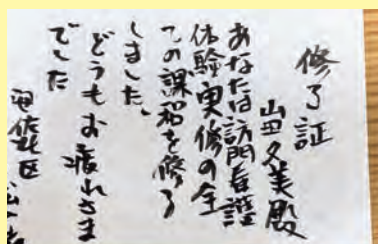 修了証
山田久美殿
あなたは訪問看護
体験実修の全
ての課程を修了
しました。
どうもお疲れさま
でした